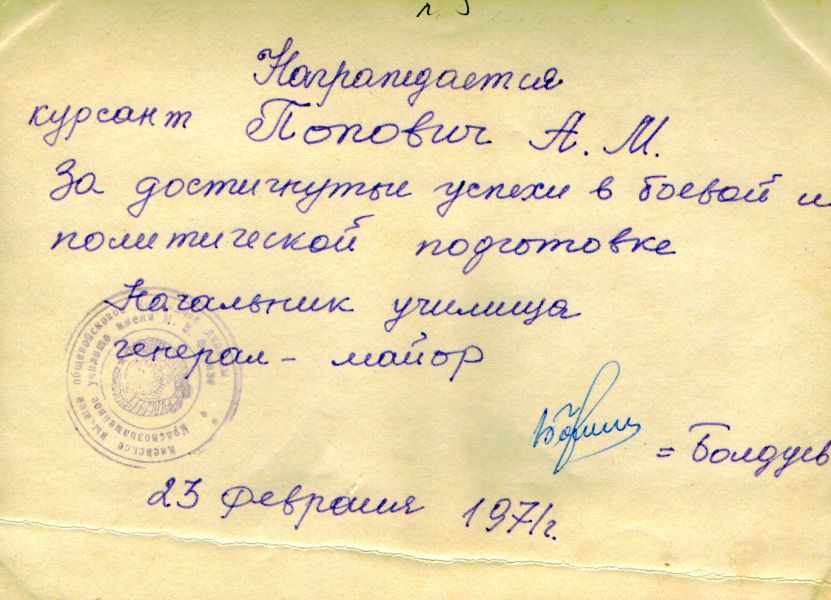 Награждается
курсант Попович А. М.
За достигнутые успехи в боевой и
политической подготовке
Начальник училища
генерал-майор
= Болдуев
23 февраля 1971г.
Киевское высшее общевойсковое
Краснознаменное училище имени М. В. Фрунзе